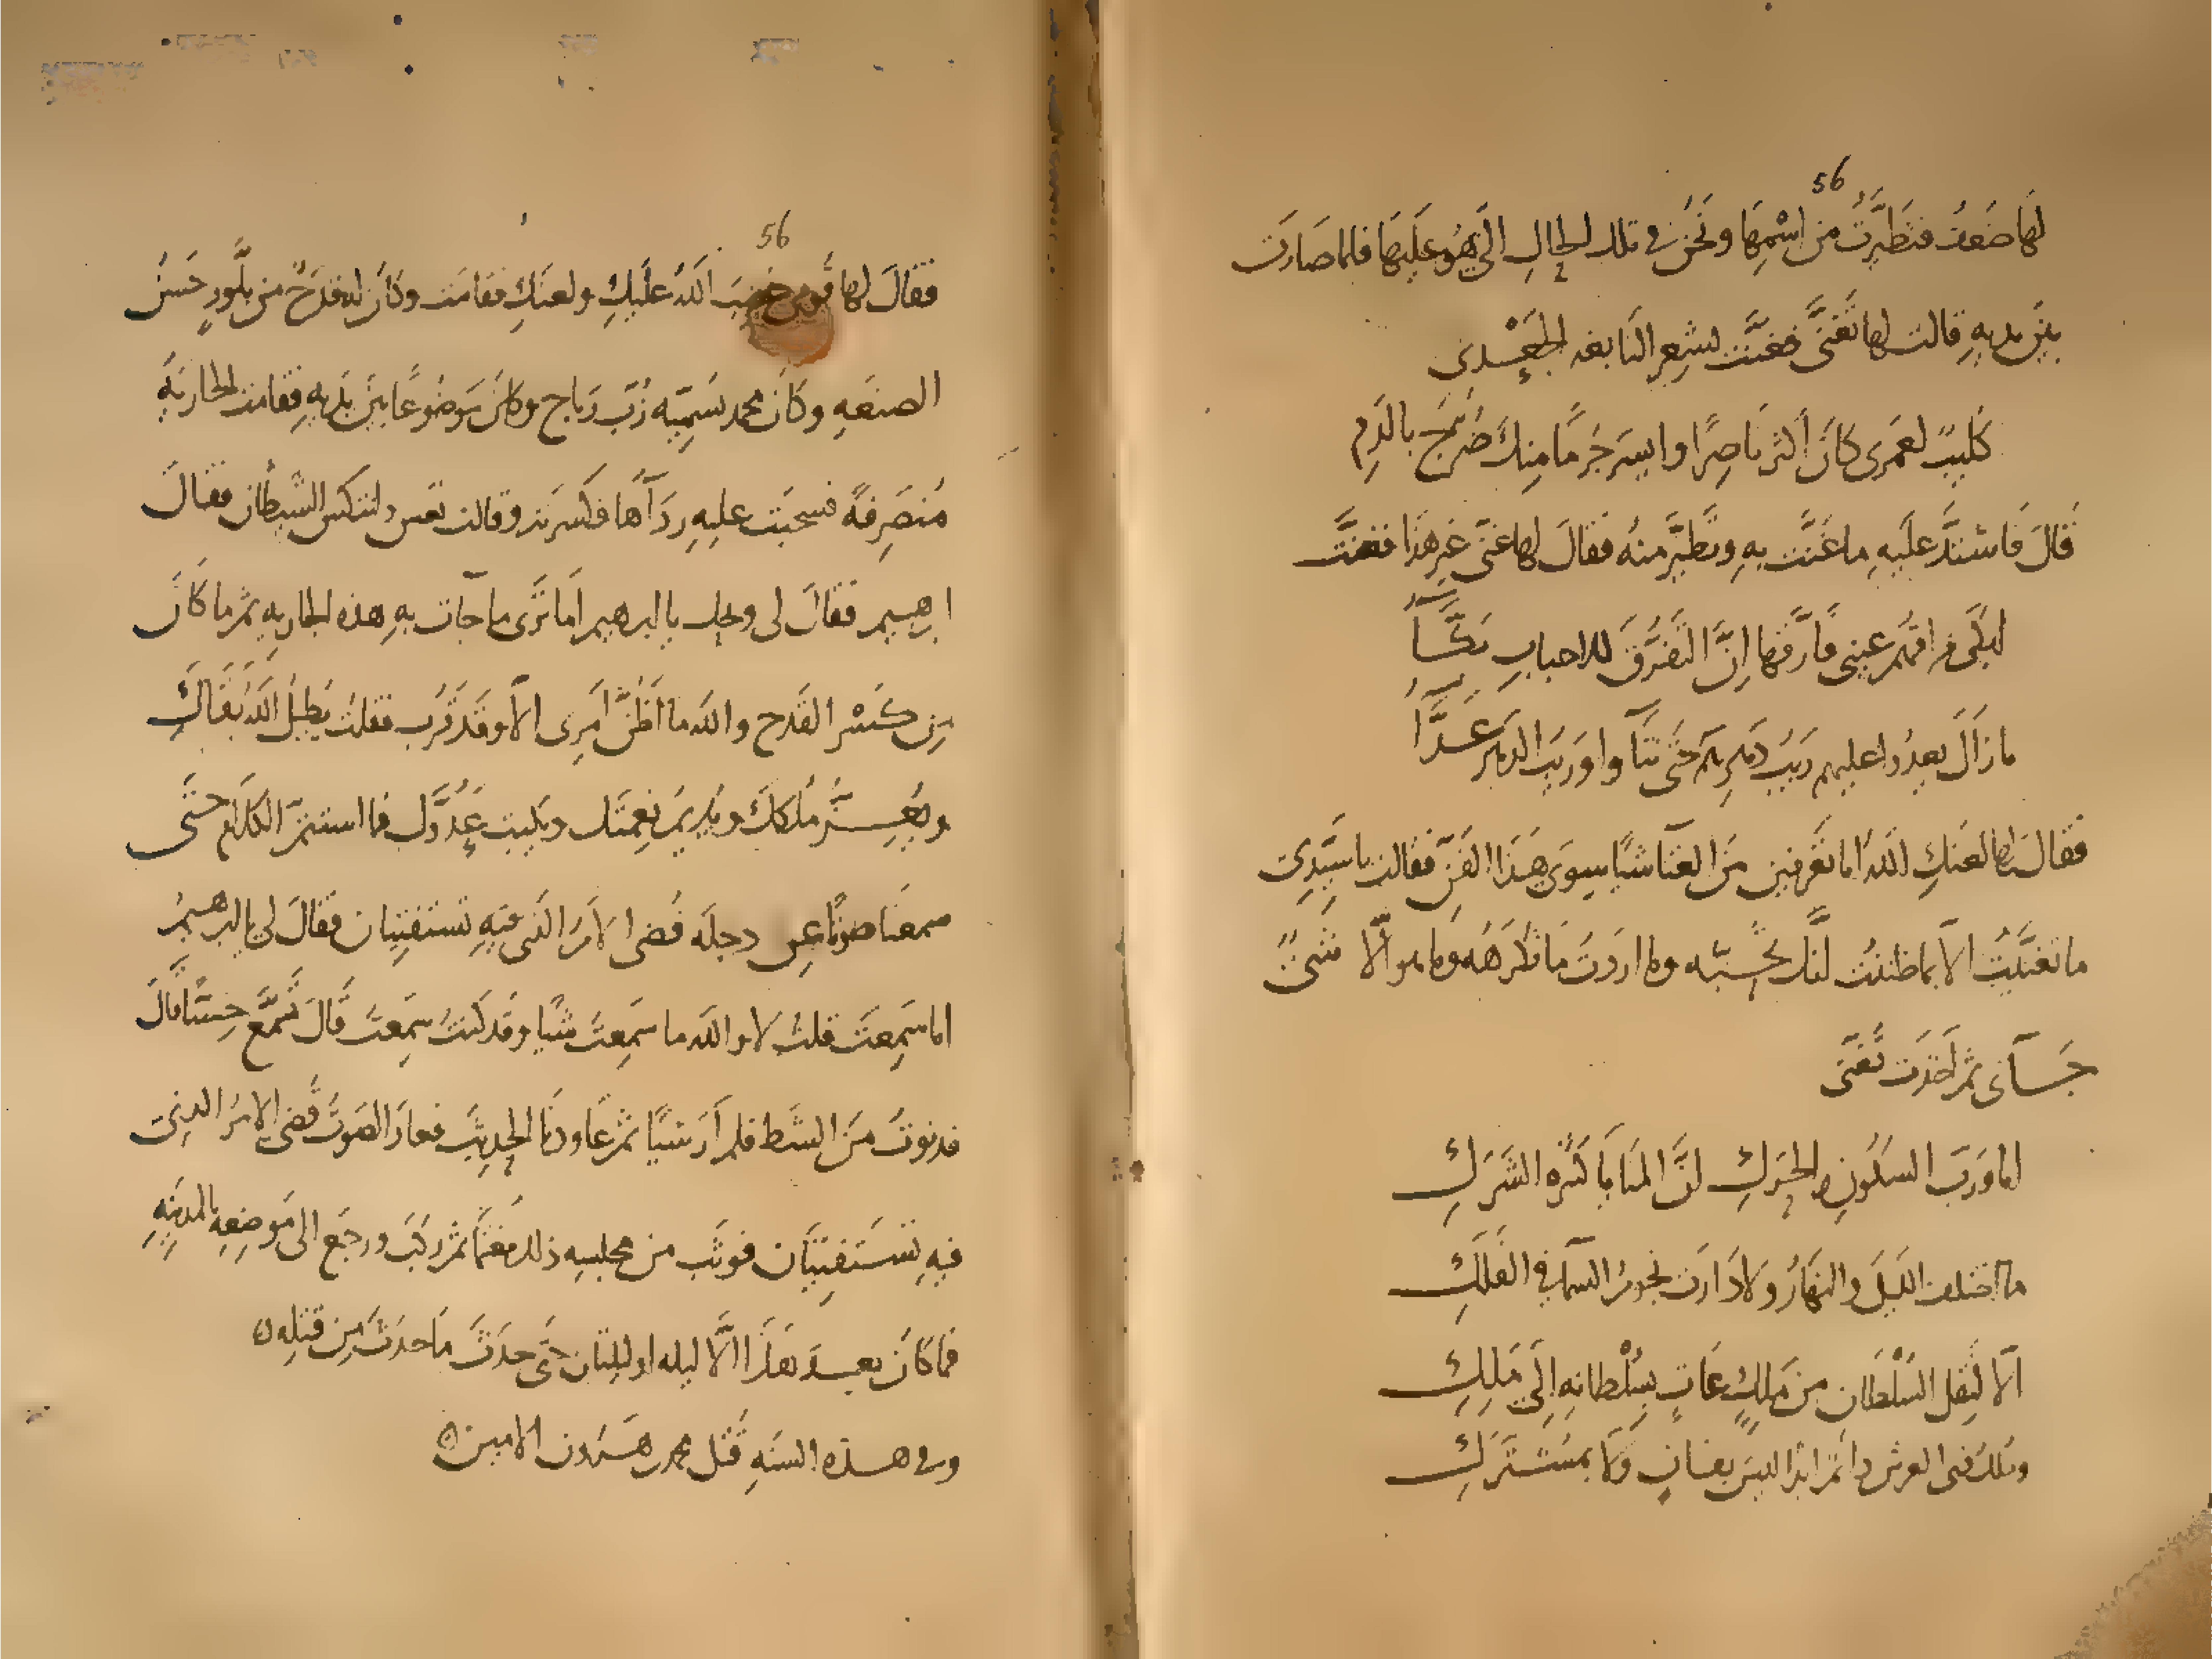 56
لها ضعف فتطيرت من اسمها ونحن في تلك الحال التي هو عليها فلما صارت
بين يديه قالت لها تغني فغنت بشعر النابغه الجعدي
كليب لعمري كان اكثر ناصرا وايسر جرما منك ضرج بالدم
قال فاشتد عليه ما غنت به وتطير منه فقال لها غني غير هذا فغنت
ابكى فراقهم عيني فارقها ان التفرق للاحباب بكآ
ما زال يعدوا عليهم ريب دهرهم حتى تفانوا وريب الدهر عدآ
فقال لها لعنك الله اما تعرفين من الغنا شيا سوى هذا الفن فقالت يا سيدي
ما تغنيت الا بما ظننت انك تحبه وما اردت ما تكرهه وما هو الا شي
جآني ثم اخذت تغني
اما ورب السكون والحرك ان المنايا كثيره الشرك
ما اختلف الليل والنهار ولا دارت نجوم السمآ في الفلك
الا لنقل السلطان من ملك عات بسلطانه الى ملك
وملك ذي العرش دائم ابدا ليس بفان ولا بمشترك
56
فقال لها قومي غضب الله عليك ولعنك فقامت وكان له قدح من بلور حسن
الصنعه وكان محمد يسميه زب رباح وكان موضوعا بين يديه فقامت الجاريه
منصرفه فسحبت عليه ردآها فكسرته وقالت تعس وانتكس الشيطان فقال
ابرهيم فقال لي ويحك يا ابرهيم اما ترى ما جآت به هذه الجاريه ثم ما كان
من كسر القدح والله ما اظن امري الا وقد قرب فقلت يطيل الله بقاك
ويعز ملكك ويديم نعمتك ويكبت عدوك فما استتم الكلام حتى
سمعنا صوتا من دجله قضي الامر الذي فيه تستفتيان فقال لي يا ابرهيم
اما سمعت قلت لا والله ما سمعت شيا وقد كنت سمعت قال تسمع حسا قال
فدنوت من الشط فلم ار شيا ثم عاودنا الحديث فعاد الصوت قضي الامر الذي
فيه تستفتيان فوثب من مجلسه ذلك مغتما ثم ركب ورجع الى موضعه بالمدينه
فما كان بعد هذا الا ليله او ليلتان حتى حدث ما حدث من قتله
وفي هذه السنه قتل محمد بن هرون الامين